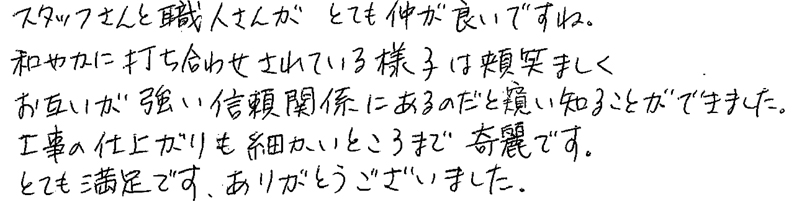 スタッフさんと職人さんが とても仲が良いですね。
和やかに打ち合わせされている様子は頬笑ましく
お互いが強い信頼関係にあるのだと窺い知ることができました。
工事の仕上がりも細かいところまで奇麗です。
とても満足です、ありがとうございました。